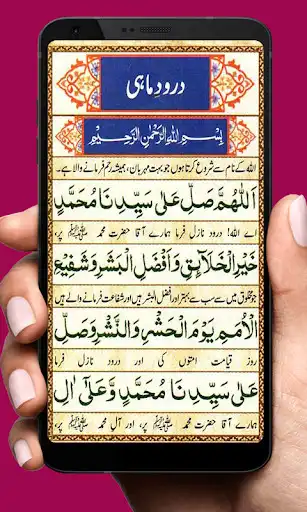 درود ماہی
بِسْمِ اللهِ الرَّحْمٰنِ الرَّحِيْمِ
اللہ کے نام سے شروع کرتا ہوں جو بہت مہربان، ہمیشہ رحم فرمانے والا ہے۔
اَللّٰهُمَّ صَلِّ عَلٰى سَيِّدِنَا مُحَمَّدٍ
اے اللہ! درود نازل فرما ہمارے آقا حضرت محمد ﷺ پر،
خَيْرِ الْخَلَآئِقِ وَاَفْضَلِ الْبَشَرِ وَشَفِيْعِ
جو مخلوق میں سب سے بہتر اور افضل البشر ہیں اور شفاعت فرمانے والے ہیں
الْاُمَمِ يَوْمَ الْحَشْرِ وَالنَّشْرِ وَصَلِّ
روز قیامت امتوں کی اور درود نازل فرما
عَلٰى سَيِّدِنَا مُحَمَّدٍ وَّعَلٰٓى اٰلِ
ہمارے آقا حضرت محمد ﷺ پر، اور آل محمد ﷺ پر